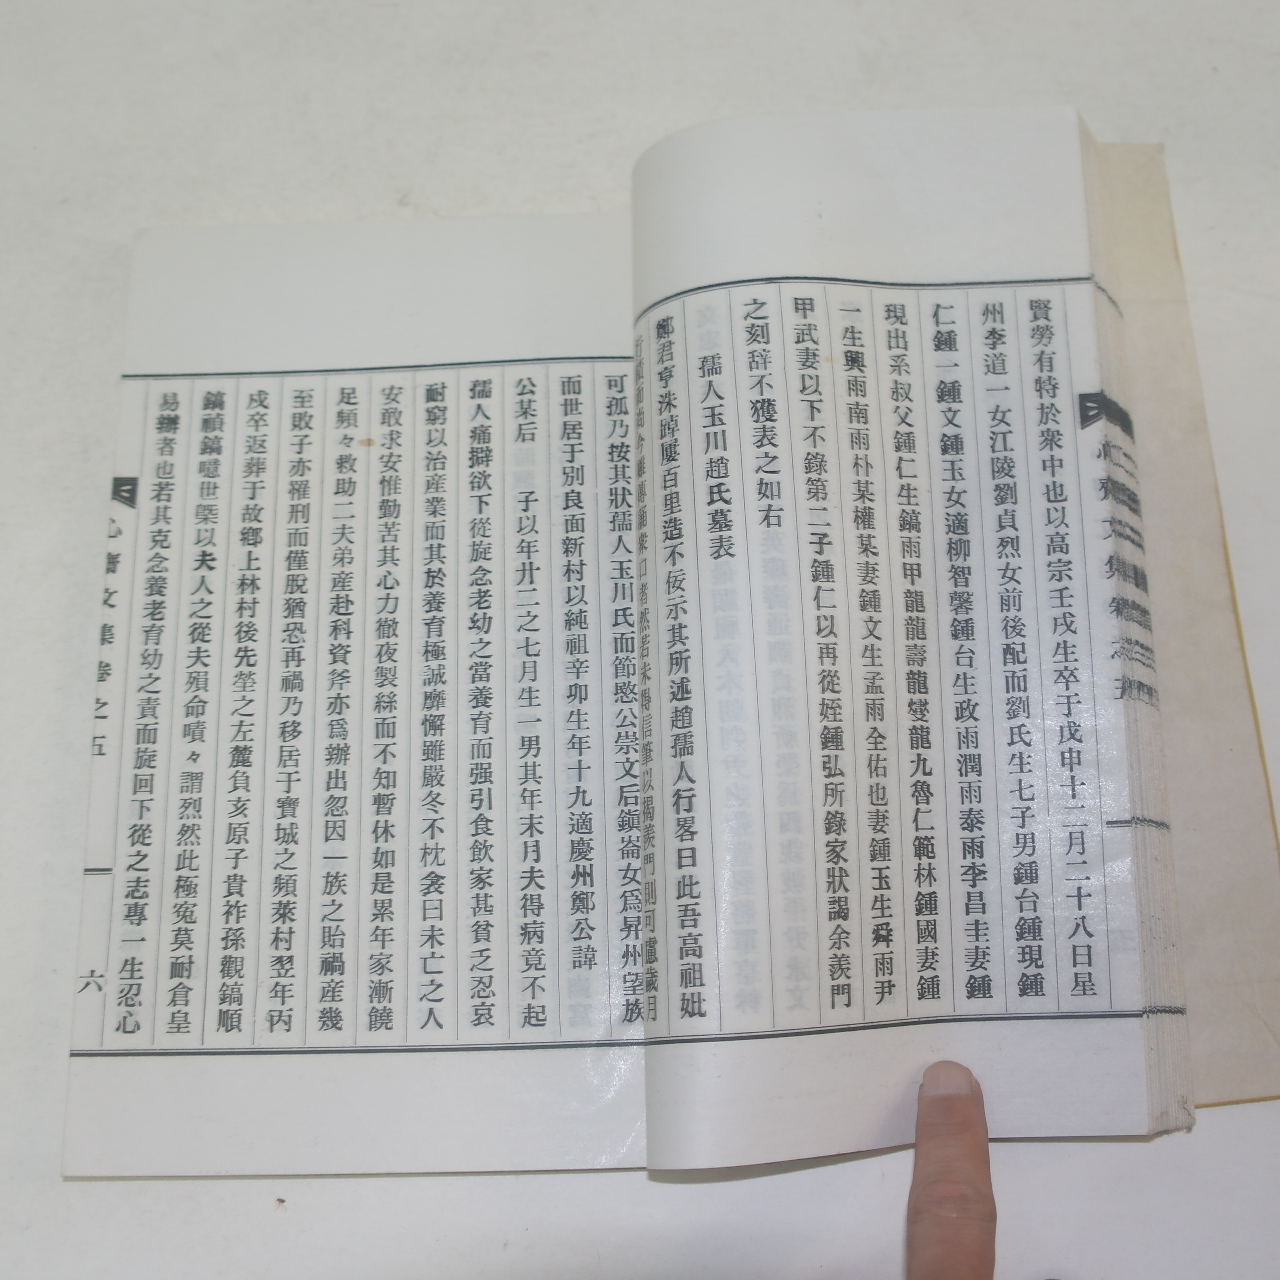 賢勞有特於衆中也以高宗壬戌生卒于戊申十二月二十八日星
州李道一女江陵劉貞烈女前後配而劉氏生七子男鍾台鍾現鍾
仁鍾一鍾文鍾玉女適柳智馨鍾台生政雨潤雨泰雨李昌圭妻鍾
現出系叔父鍾仁生鎬雨甲龍龍壽龍燮龍九魯仁範林鍾國妻鍾
一生興雨南雨朴某權某妻鍾文生孟雨全佑也妻鍾玉生舜雨尹
甲武妻以下不錄第二子鍾仁以再從姪鍾弘所錄家狀謁余羨門
之刻辞不獲表之如右
孺人玉川趙氏墓表
鄭君亨洙踔屢百里造不佞示其所述趙孺人行畧曰此吾高祖妣
衆口者然若未得信筆以揭羨門則可慮歲月
可孤乃按其狀孺人玉川氏而節愍公崇文后鎭崙女爲昇州望族
而世居于別良面新村以純祖辛卯生年十九適慶州鄭公諱
公某后 子以年廿二之七月生一男其年末月夫得病竟不起
孺人痛擗欲下從旋念老幼之當養育而强引食飲家甚貧乏忍哀
耐窮以治産業而其於養育極誠靡懈雖嚴冬不枕衾曰未亡之人
安敢求安惟勤苦其心力徹夜製絲而不知暫休如是累年家漸饒
足頻々救助二夫弟産赴科資斧亦爲辦出忽因一族之貽禍産幾
至敗子亦罹刑而僅脫猶恐再禍乃移居于寶城之頻萊村翌年丙
戍卒返葬于故鄕上林村後先塋之左麓負亥原子貴祚孫觀鎬順
鎬禎鎬噫世槩以夫人之從夫殞命嘖々謂烈然此極寃莫耐倉皇
易辦者也若其克念養老育幼之責而旋回下從之志專一生忍心
心齋文集卷之五
六